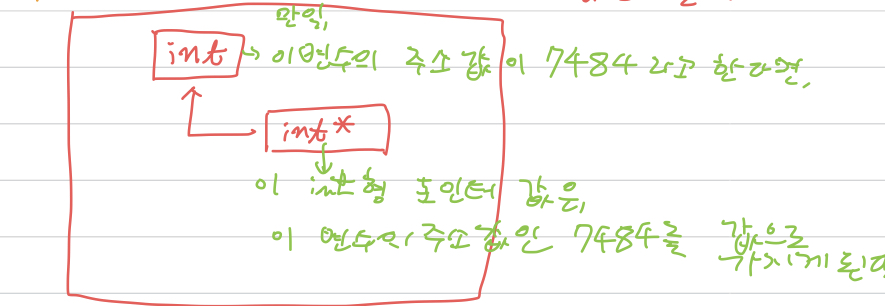 만일,
int → 이 변수의 주소값이 7484 라고 한다면,
int*
이 int형 포인터 값은,
이 변수의 주소값인 7484를 값으로
가지게 된다